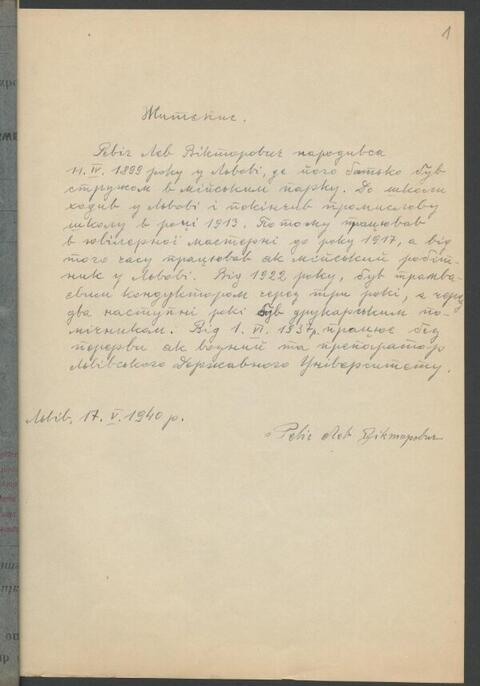 1
Житєпис.
Ревіч Лев Вікторович народився
11. IV. 1899 року у Львові, де його батько був
стружом в мійським парку. До школи
ходив у Львові і покінчив промислову
школу в році 1913. Потому працював
в ювілєрної мастерні до року 1917, а від
того часу працював як мійський робіт-
ник у Львові. Від 1922 року, був трамва-
євим кондуктором через три рокі, а через
два наступні рокі був друкарським по-
мічником. Від 1. VI. 1937 р. працює без
перерви як водний та препаратор
Львівского Державного Університету.
Львів, 17. V. 1940 р.
Ревіч Лев Вікторович